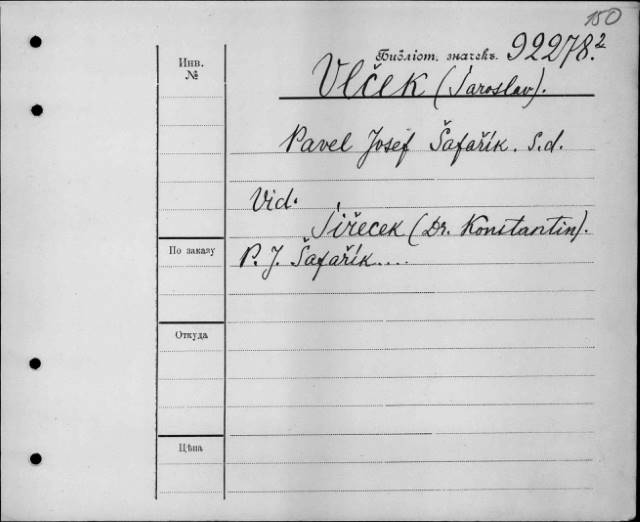 150
Инв.
№
Библіот. значекъ. 92278.²
Vlček (Jaroslav).
Pavel Josef Šafařík. S.d.
Vid.
Jireček (Dr. Konstantin).
По заказу
P. J. Šafařík....
Откуда
Цѣна